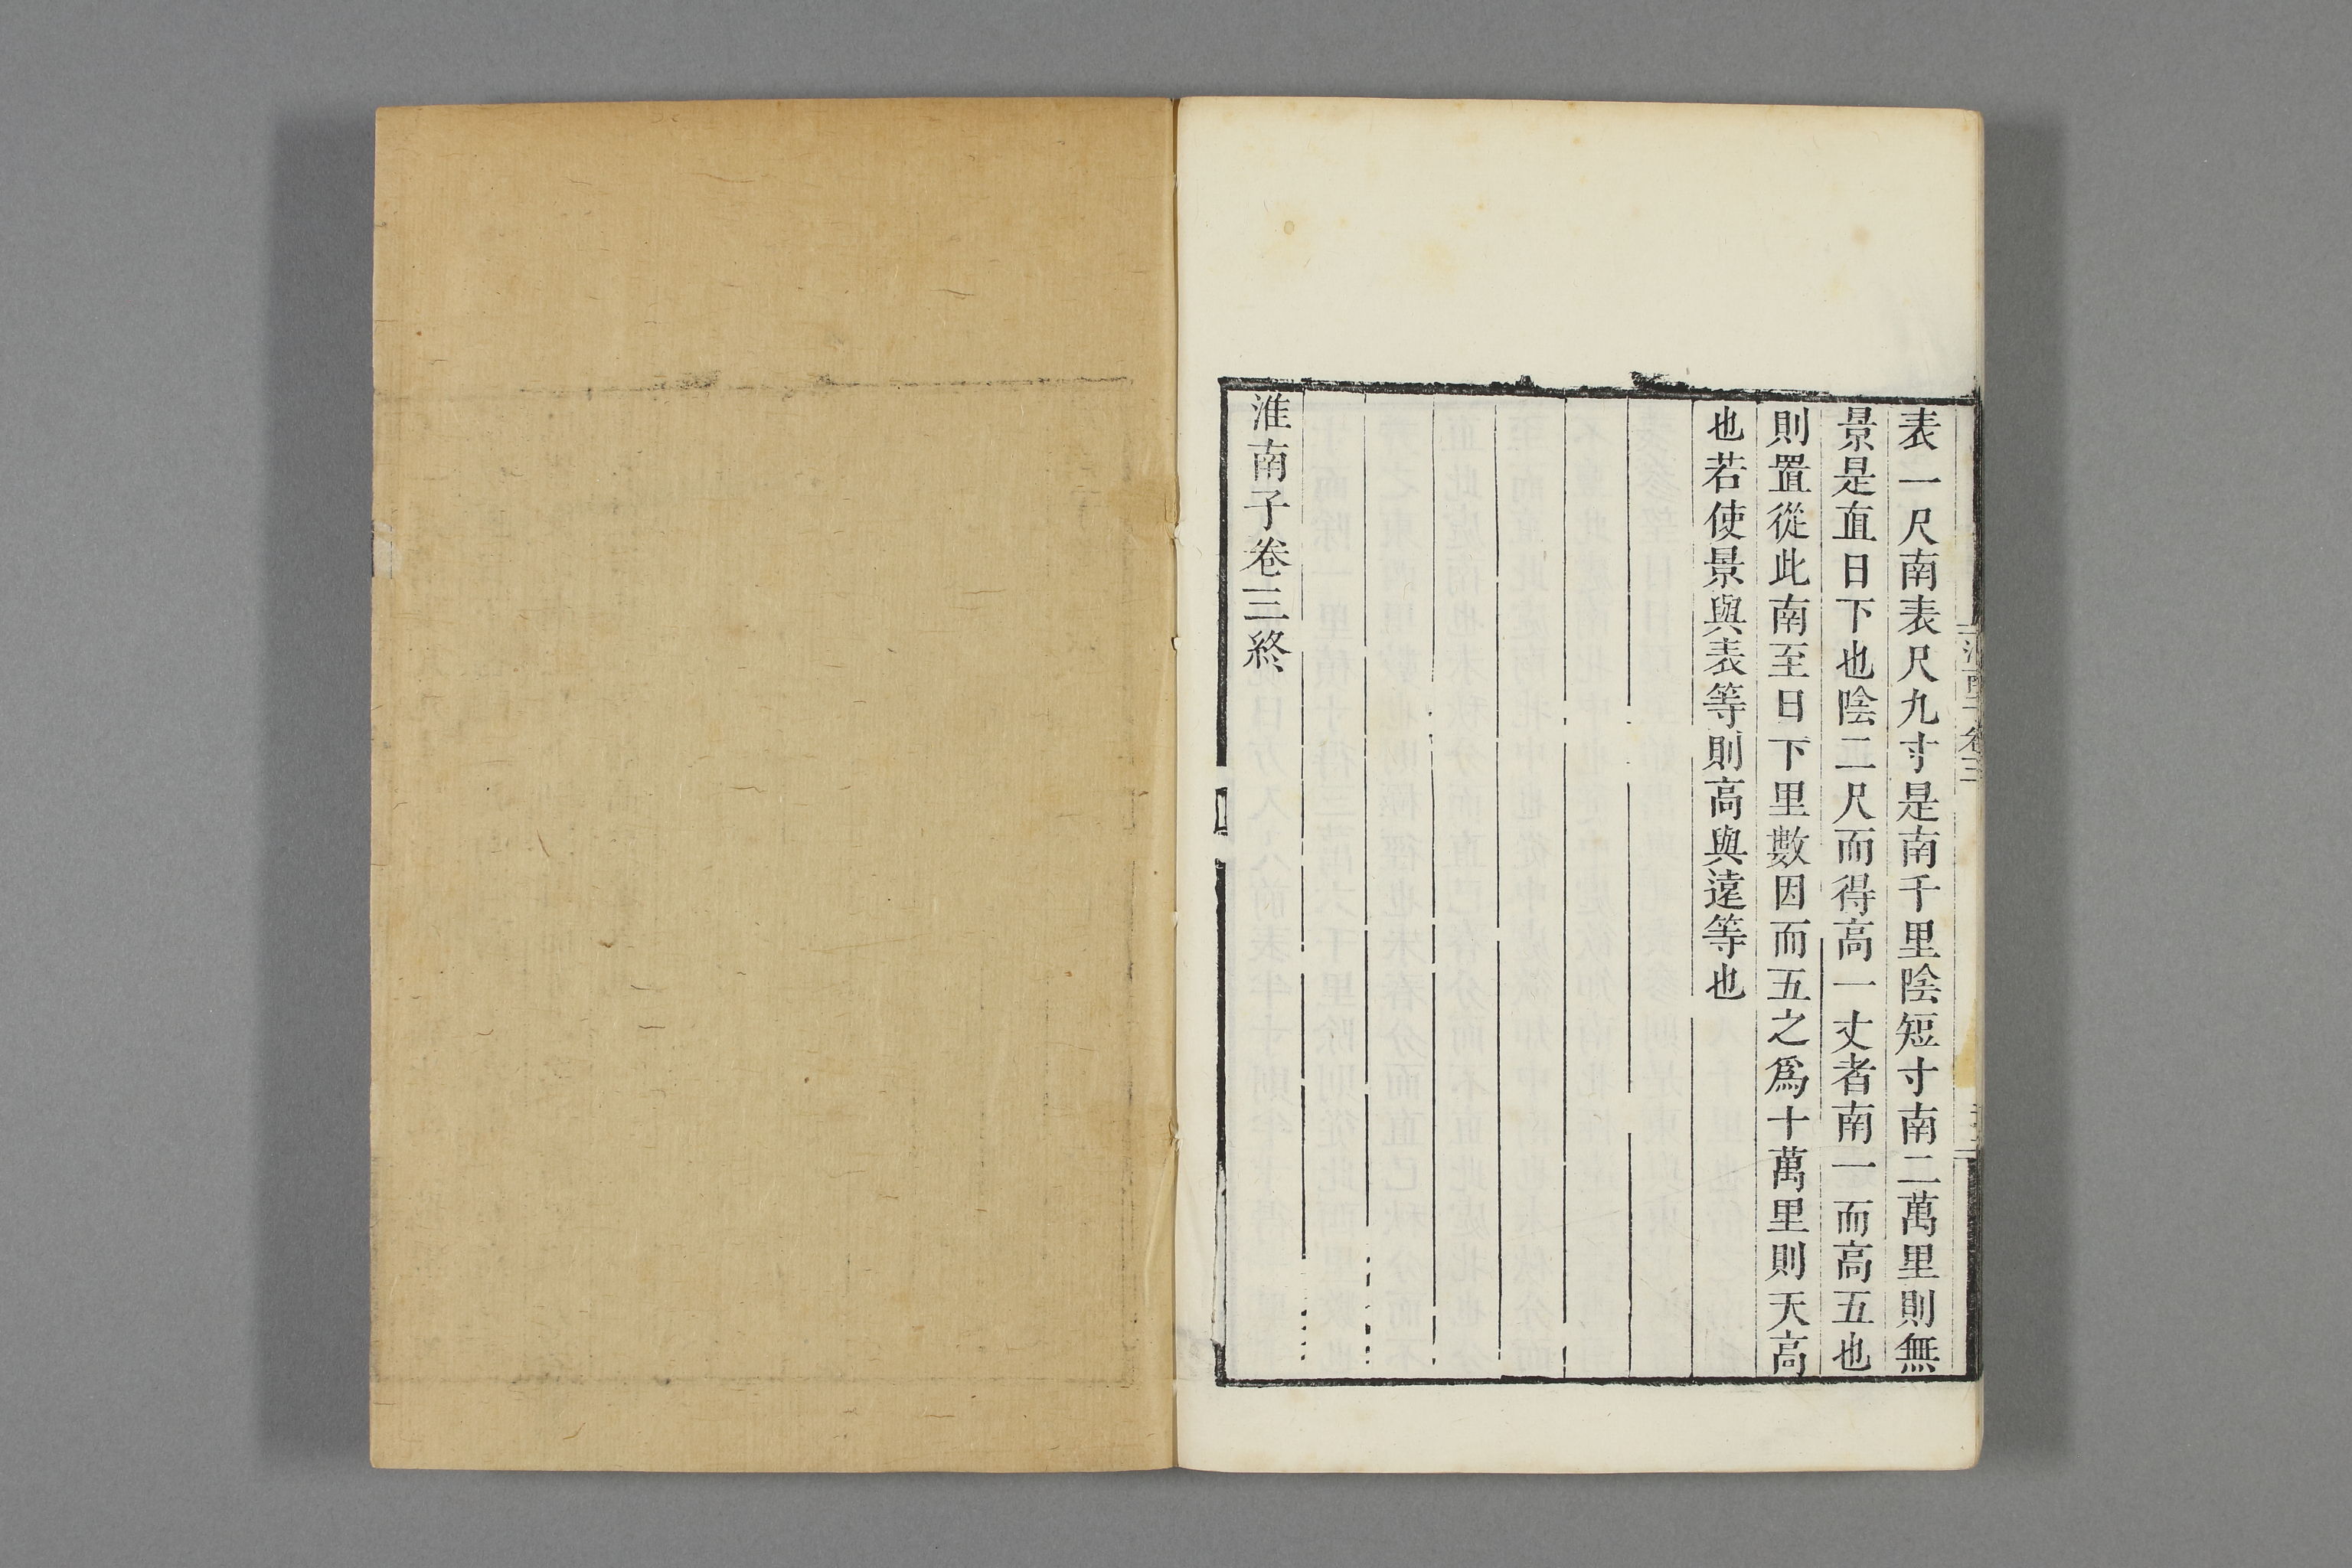 表一尺南表尺九寸是南千里陰短寸南二萬里則無
景是直日下也陰二尺而得高一丈者南一而高五也
則置從此南至日下里數因而五之爲十萬里則天高
也若使景與表等則高與遠等也
淮南子卷三終